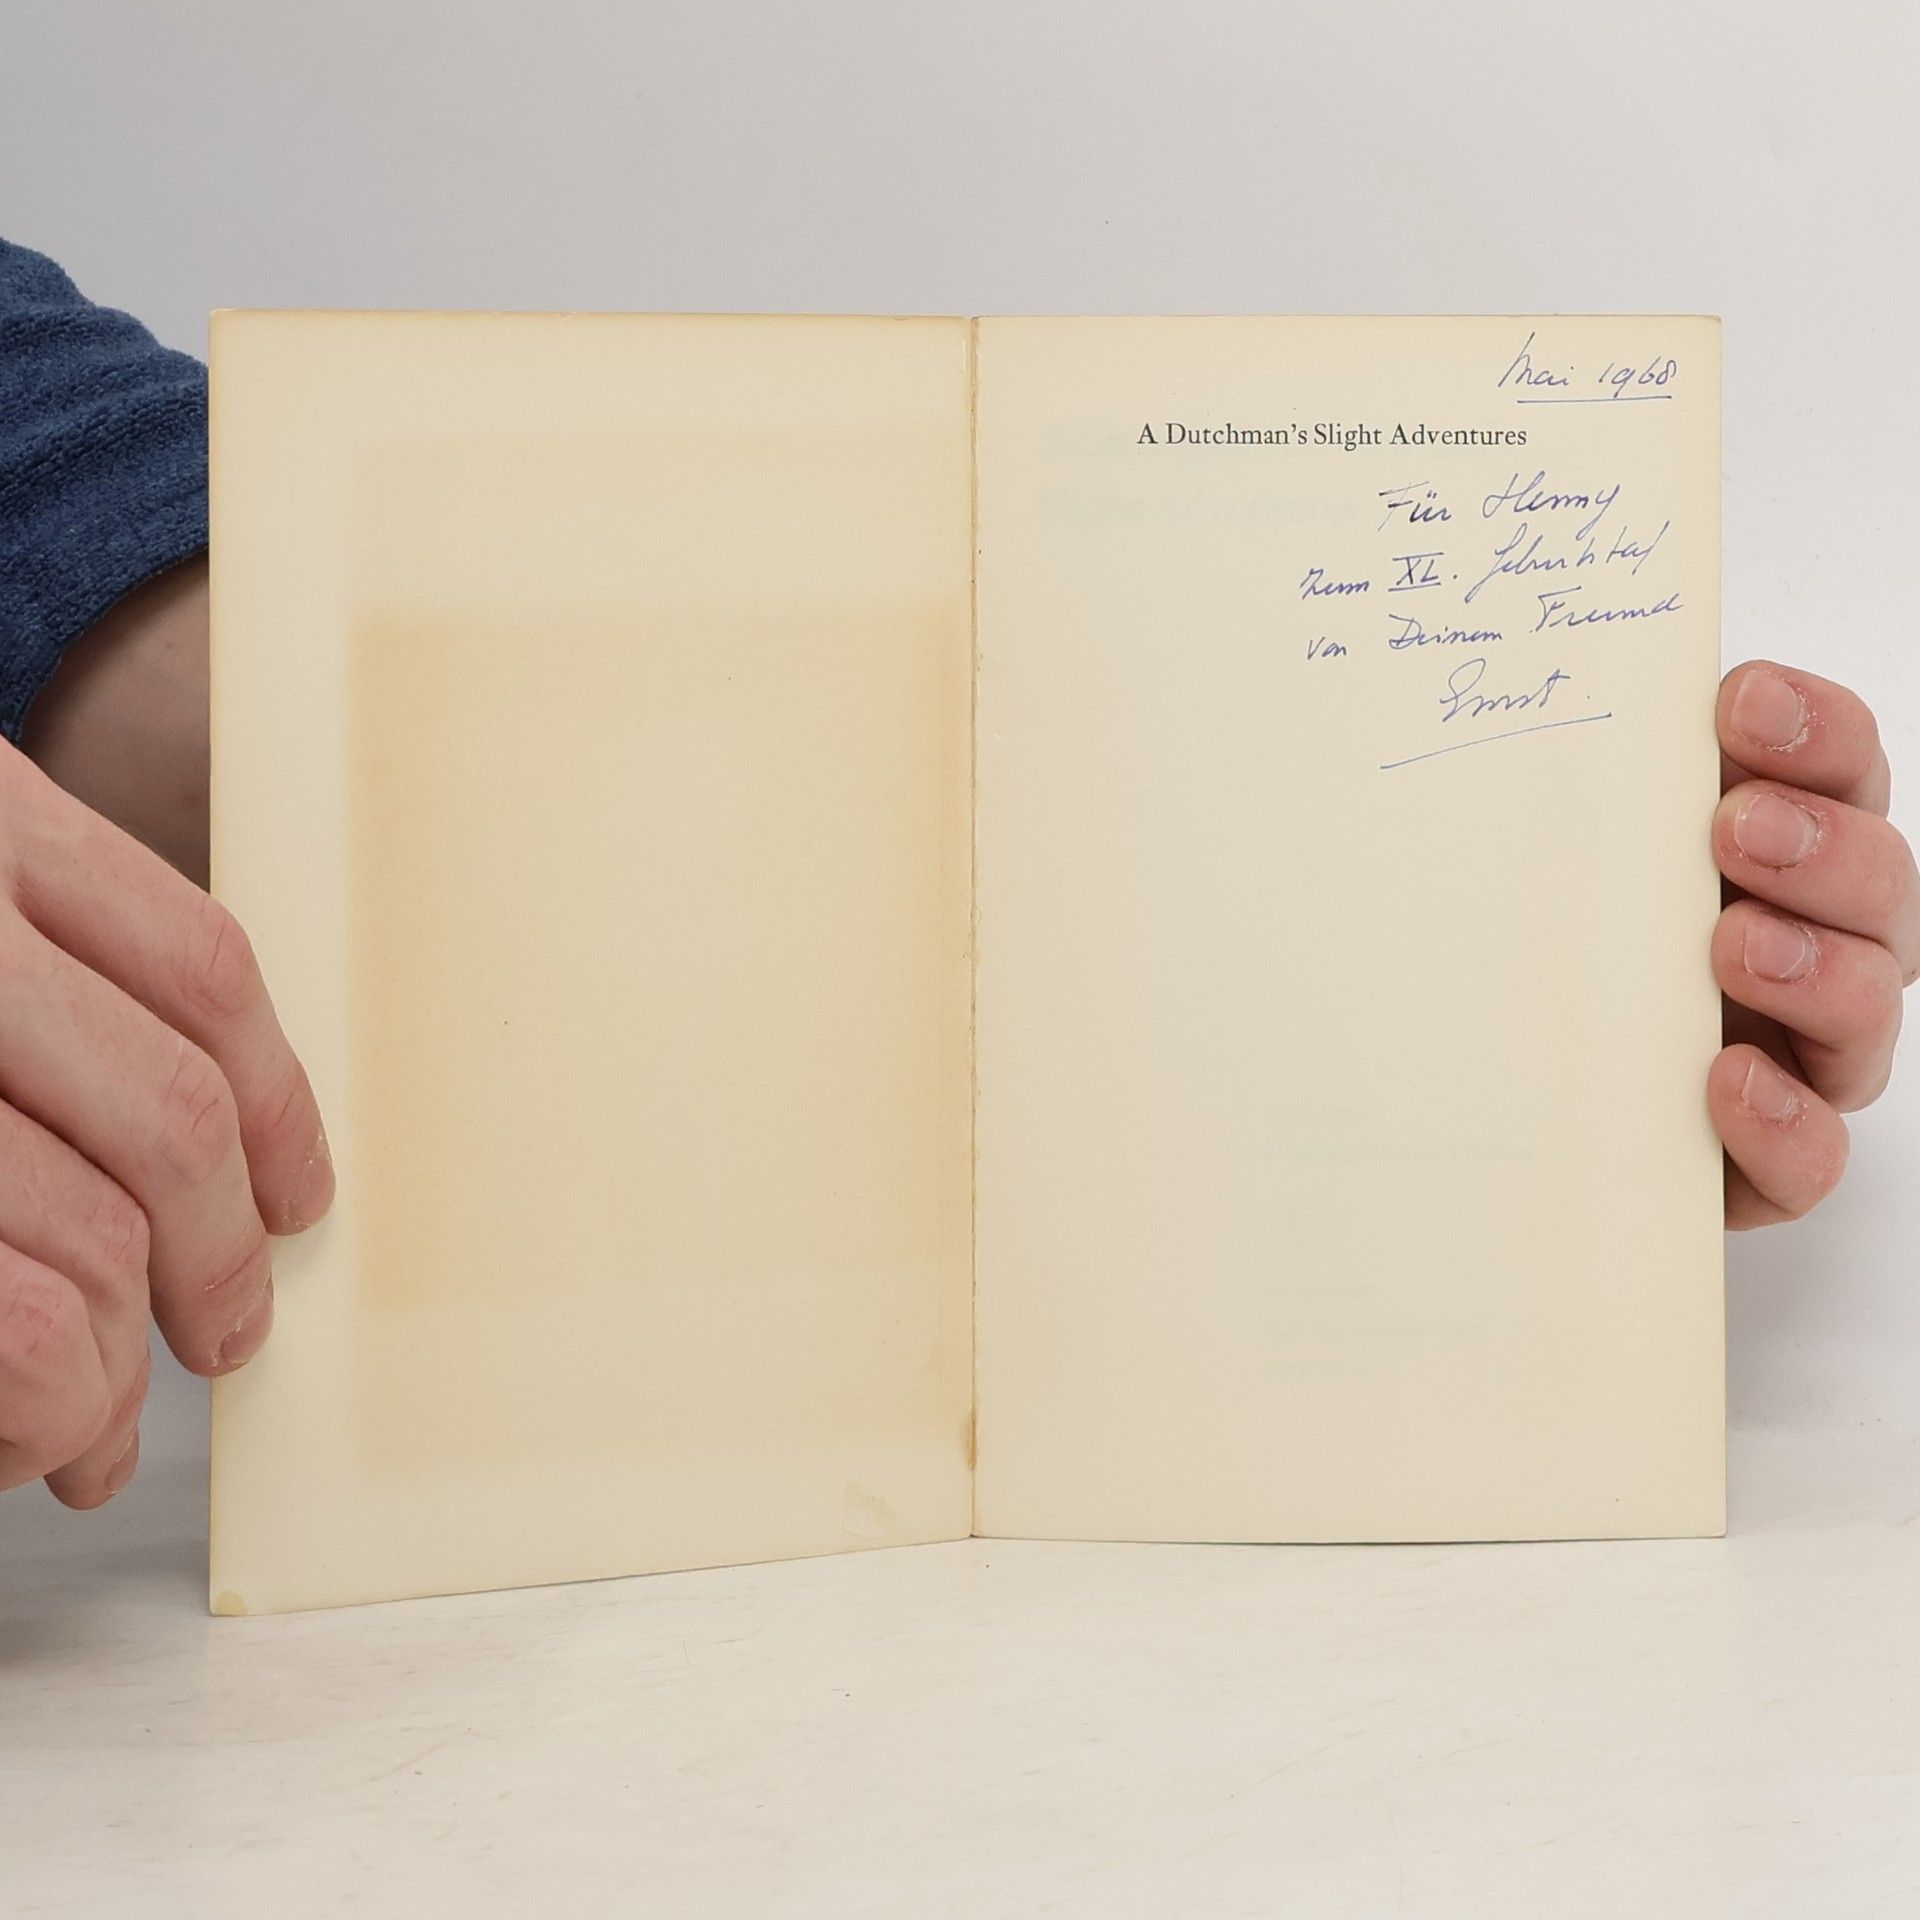 Mai 1968
A Dutchman's Slight Adventures
Für Henny
zum XL. Geburtstag
von Deinem Freunde
Ernst.